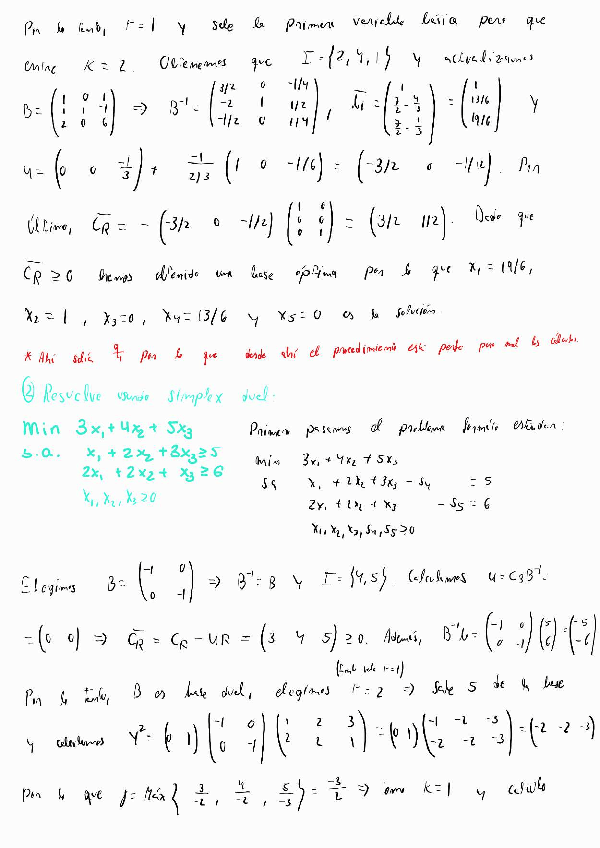 Por lo tanto, r=1 y sale la primera variable básica para que
entre K=2. Obtenemos que I={2,4,1} y actualizamos
B= (1 0 1; 1 1 -1; 2 0 6) ⇒ B⁻¹= (3/2 0 -1/4; -2 1 1/2; -1/2 0 1/4), b̄= (1; 7/2 - 4/3; 7/2 - 1/3) = (1; 13/6; 19/6) y
u= (0 0 -1/3) + -1/(2/3) (1 0 -1/6) = (-3/2 0 -1/12). Por
último, C̄R = - (-3/2 0 -1/2) (1 0; 0 0; 0 1) = (3/2 1/2). Dado que
C̄R ≥ 0 hemos obtenido una base óptima por lo que x₁ = 19/6,
x₂ = 1, x₃=0, x₄=13/6 y x₅=0 es la solución.
* Ahí salía por lo que desde ahí el procedimiento está perfe pero mal los cálculos.
② Resuelve usando simplex dual.
Min 3x₁+4x₂+5x₃
s.a. x₁+2x₂+3x₃≥5
2x₁+2x₂+x₃≥6
x₁,x₂,x₃≥0
Primero pasamos el problema formato estándar:
min 3x₁+4x₂+5x₃
sa x₁+2x₂+3x₃-s₄ =5
2x₁+2x₂+x₃ -s₅=6
x₁,x₂,x₃,s₄,s₅≥0
Elegimos B= (-1 0; 0 -1) ⇒ B⁻¹=B y I={4,5}. Calculamos u=CBB⁻¹=
=(0 0) ⇒ C̄R = CR-uR = (3 4 5) ≥0. Además, B⁻¹b= (-1 0; 0 -1) (5; 6) = (-5; -6)
(también vale r=1)
Por lo tanto, B es base dual, elegimos r=2 ⇒ sale 5 de la base
y calculamos Y²= (0 1) (-1 0; 0 -1) (1 2 3; 2 2 1) = (0 1) (-1 -2 -3; -2 -2 -3) = (-2 -2 -3)
por lo que j= Máx {3/-2, 4/-2, 5/-3} = -3/2 ⇒ K=1 y calculo